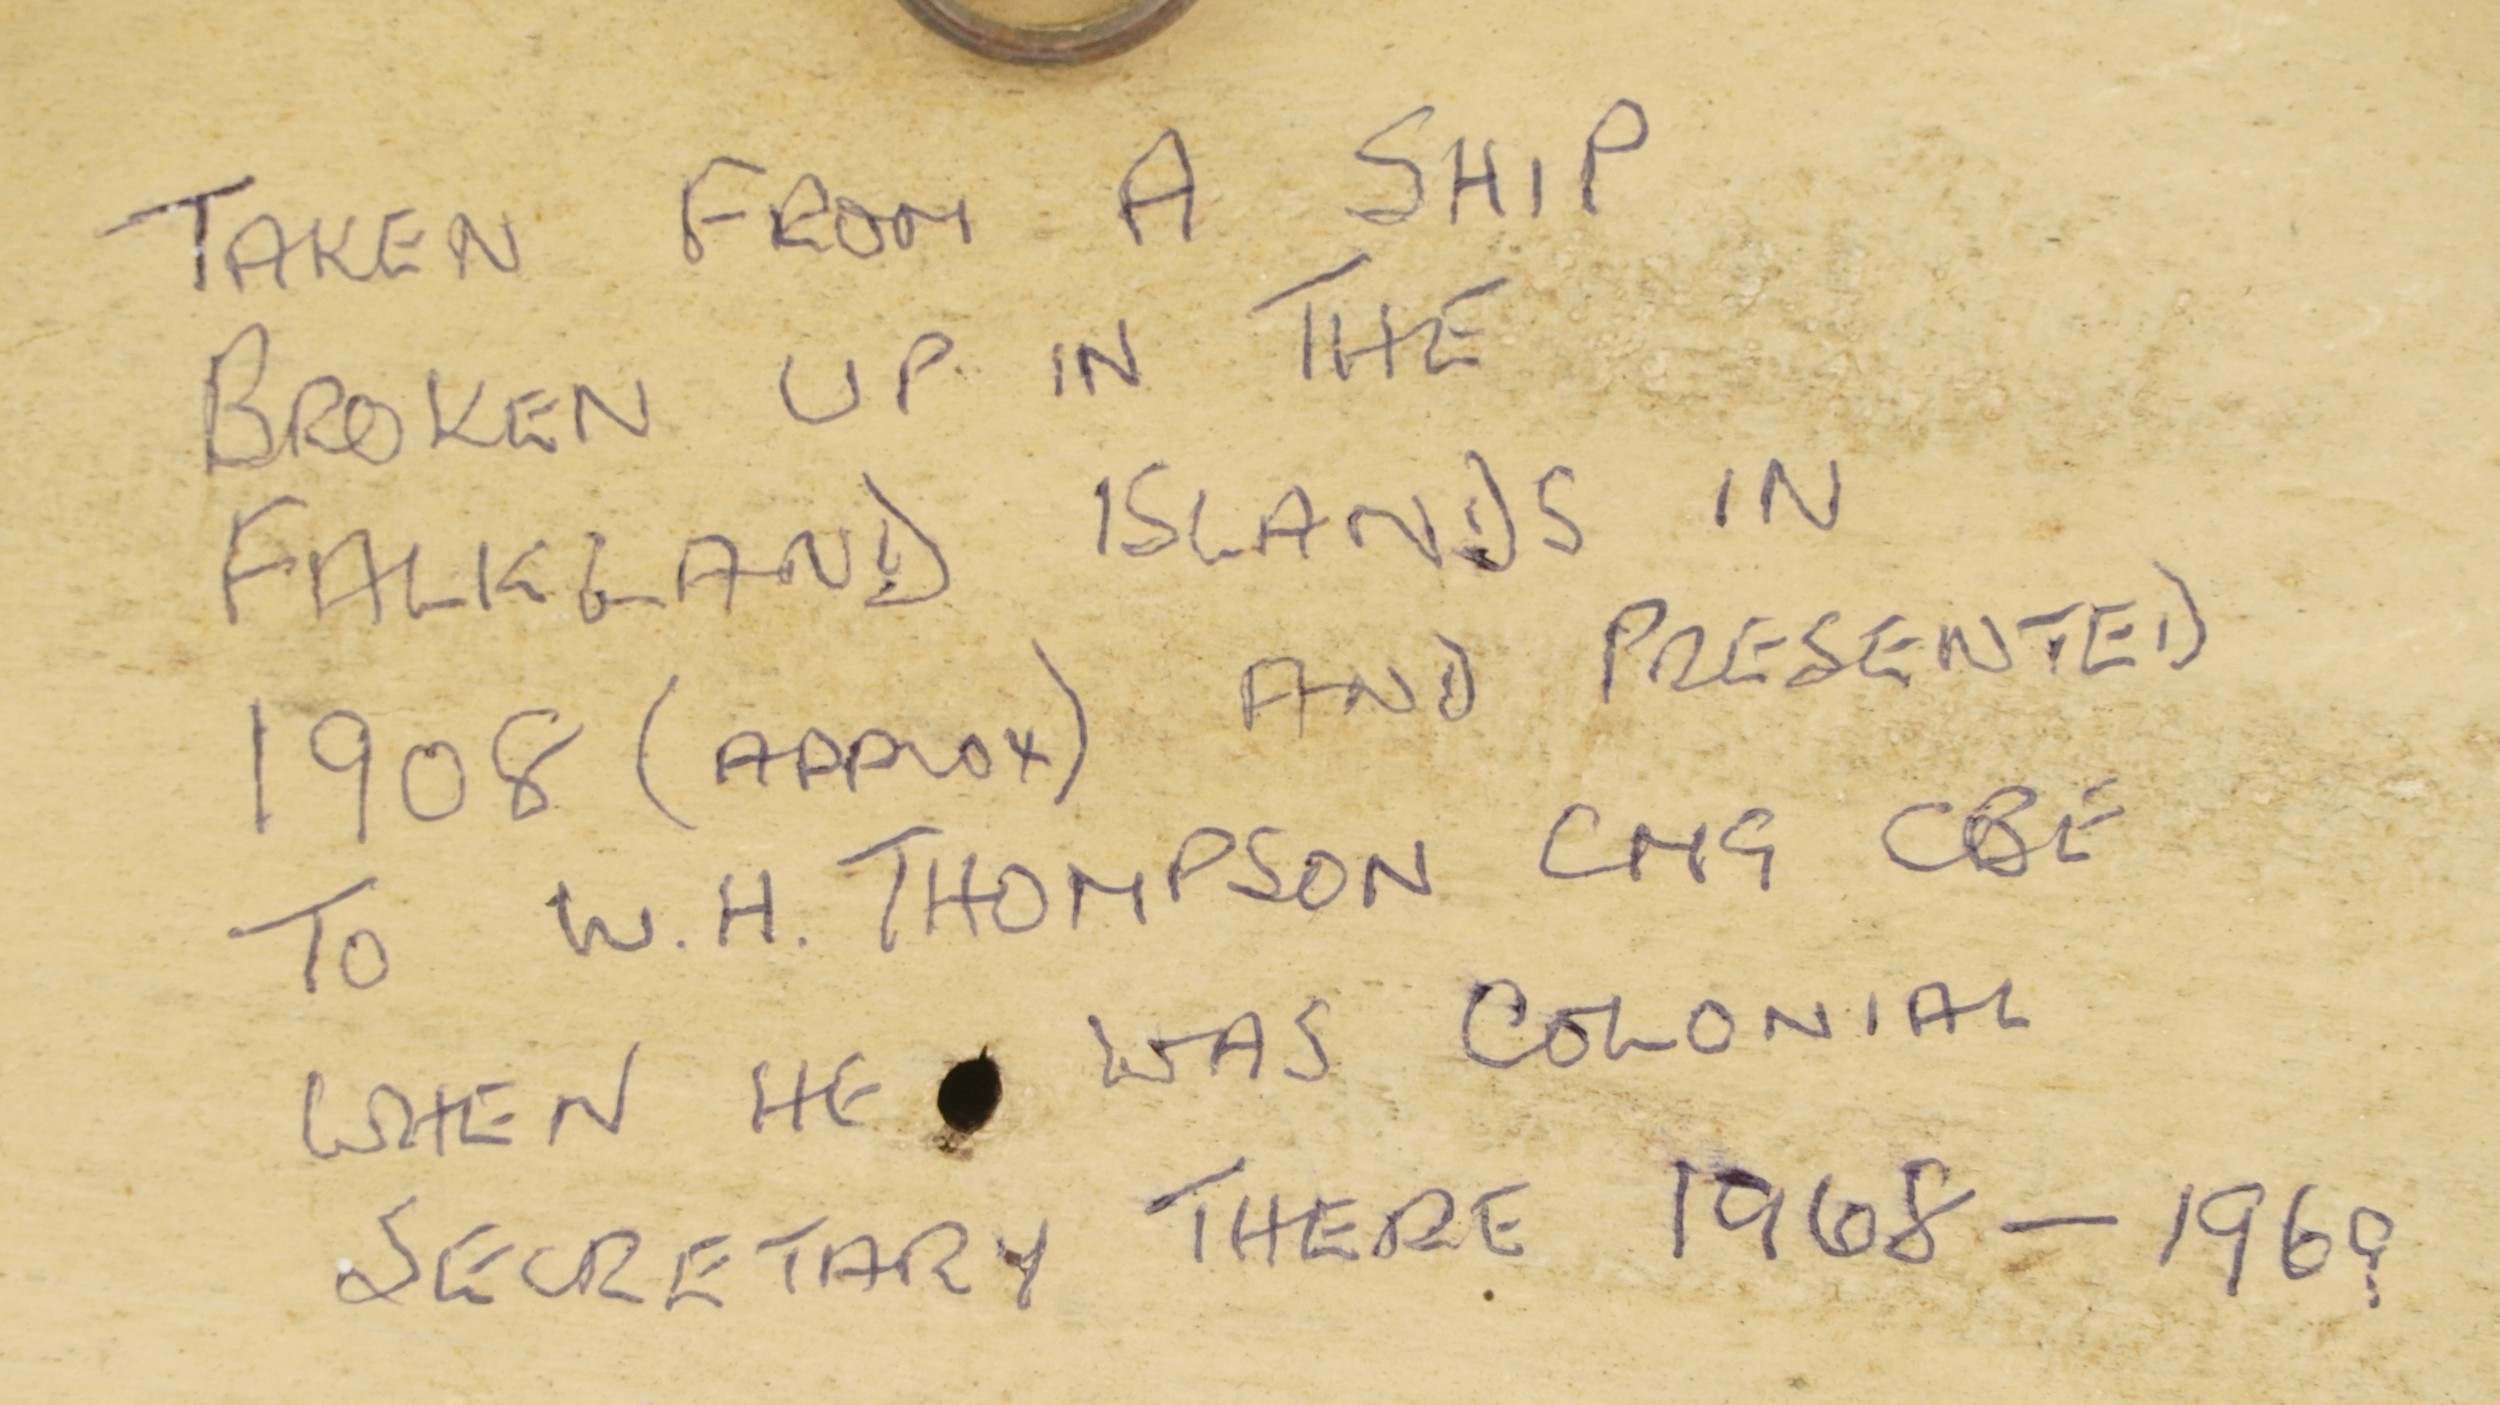 TAKEN FROM A SHIP
BROKEN UP IN THE
FALKLAND ISLANDS IN
1908 (APPROX) AND PRESENTED
TO W.H. THOMPSON CMG CBE
WHEN HE WAS COLONIAL
SECRETARY THERE 1968 — 196?